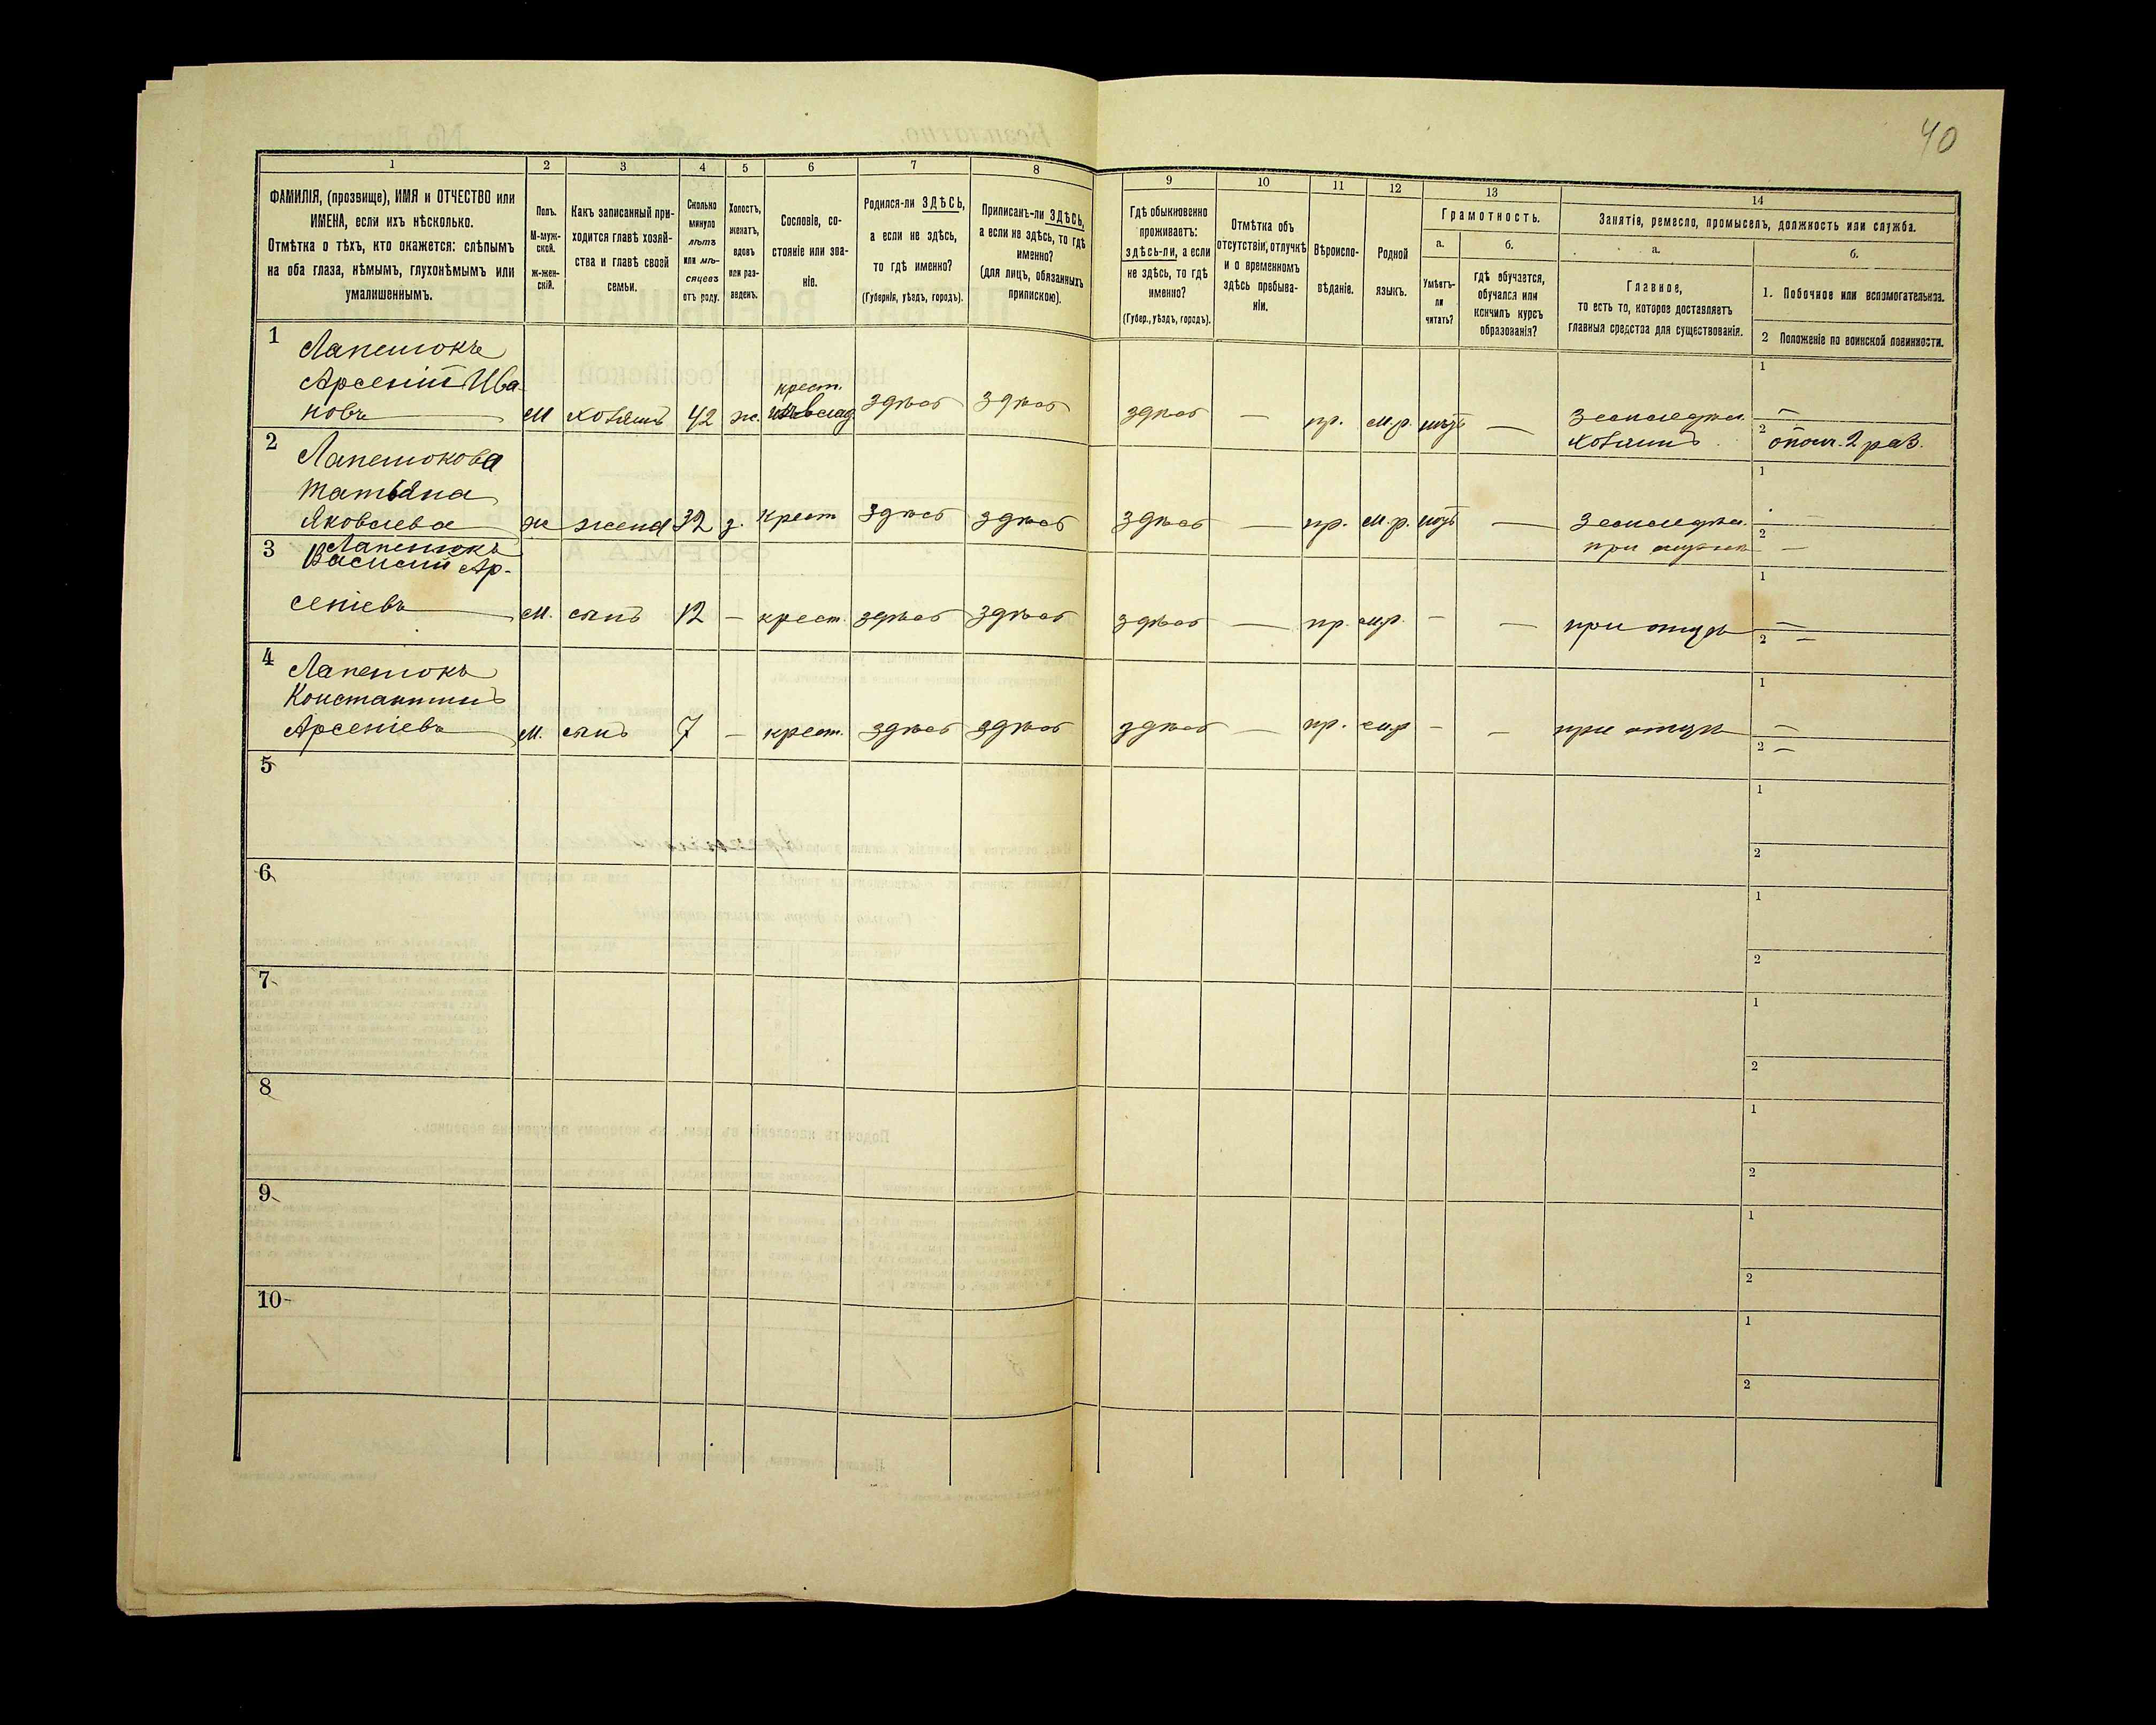 40
1 2 3 4 5 6 7 8 9 10 11 12 13 14
ФАМИЛІЯ, (прозвище), ИМЯ и ОТЧЕСТВО или
ИМЕНА, если ихъ нѣсколько.
Отмѣтка о тѣхъ, кто окажется: слѣпымъ
на оба глаза, нѣмымъ, глухонѣмымъ или
умалишеннымъ.
Полъ.
М-муж-
ской.
ж-жен-
скій.
Какъ записанный при-
ходится главѣ хозяй-
ства и главѣ своей
семьи.
Сколько
минуло
лѣтъ
или мѣ-
сяцевъ
отъ роду.
Холостъ,
женатъ,
вдовъ
или раз-
веденъ.
Сословіе, со-
стояніе или зва-
ніе.
Родился-ли ЗДѢСЬ,
а если не здѣсь,
то гдѣ именно?
(Губернія, уѣздъ, городъ).
Приписанъ-ли ЗДѢСЬ,
а если не здѣсь, то гдѣ
именно?
(для лицъ, обязанныхъ
припискою).
Гдѣ обыкновенно
проживаетъ:
здѣсь-ли, а если
не здѣсь, то гдѣ
именно?
(Губер., уѣздъ, городъ).
Отмѣтка объ
отсутствіи, отлучкѣ
и о временномъ
здѣсь пребыва-
ніи.
Вѣроиспо-
вѣданіе.
Родной
языкъ.
Грамотность.
а.
Умѣетъ-
ли
читать?
б.
гдѣ обучается,
обучался или
кончилъ курсъ
образованія?
Занятія, ремесло, промыселъ, должность или служба.
а.
Главное,
то есть то, которое доставляетъ
главныя средства для существованія.
б.
1. Побочное или вспомогательное.
2 Положеніе по воинской повинности.
1
Лапенокъ
Арсеній Ива-
новъ
М хозяинъ 42 ж. крест. здѣсь здѣсь здѣсь — пр. м.р. нѣтъ —
хозяинъ
1 —
2 ополч. 2 раз.
2
Лапенокова
Татьяна
Яковлева
ж жена 32 з. крест здѣсь здѣсь здѣсь — пр. м.р. нѣтъ —
1 —
2 —
3
Лапенокъ
Василій Ар-
сеніевъ
М. сынъ 12 — крест. здѣсь здѣсь здѣсь — пр. м.р. — — при отцѣ
1 —
2 —
4
Лапенокъ
Константинъ
Арсеніевъ
М. сынъ 7 — крест. здѣсь здѣсь здѣсь — пр. м.р — — при отцѣ
1 —
2 —
5
1
2
6
1
2
7
1
2
8
1
2
9
1
2
10
1
2